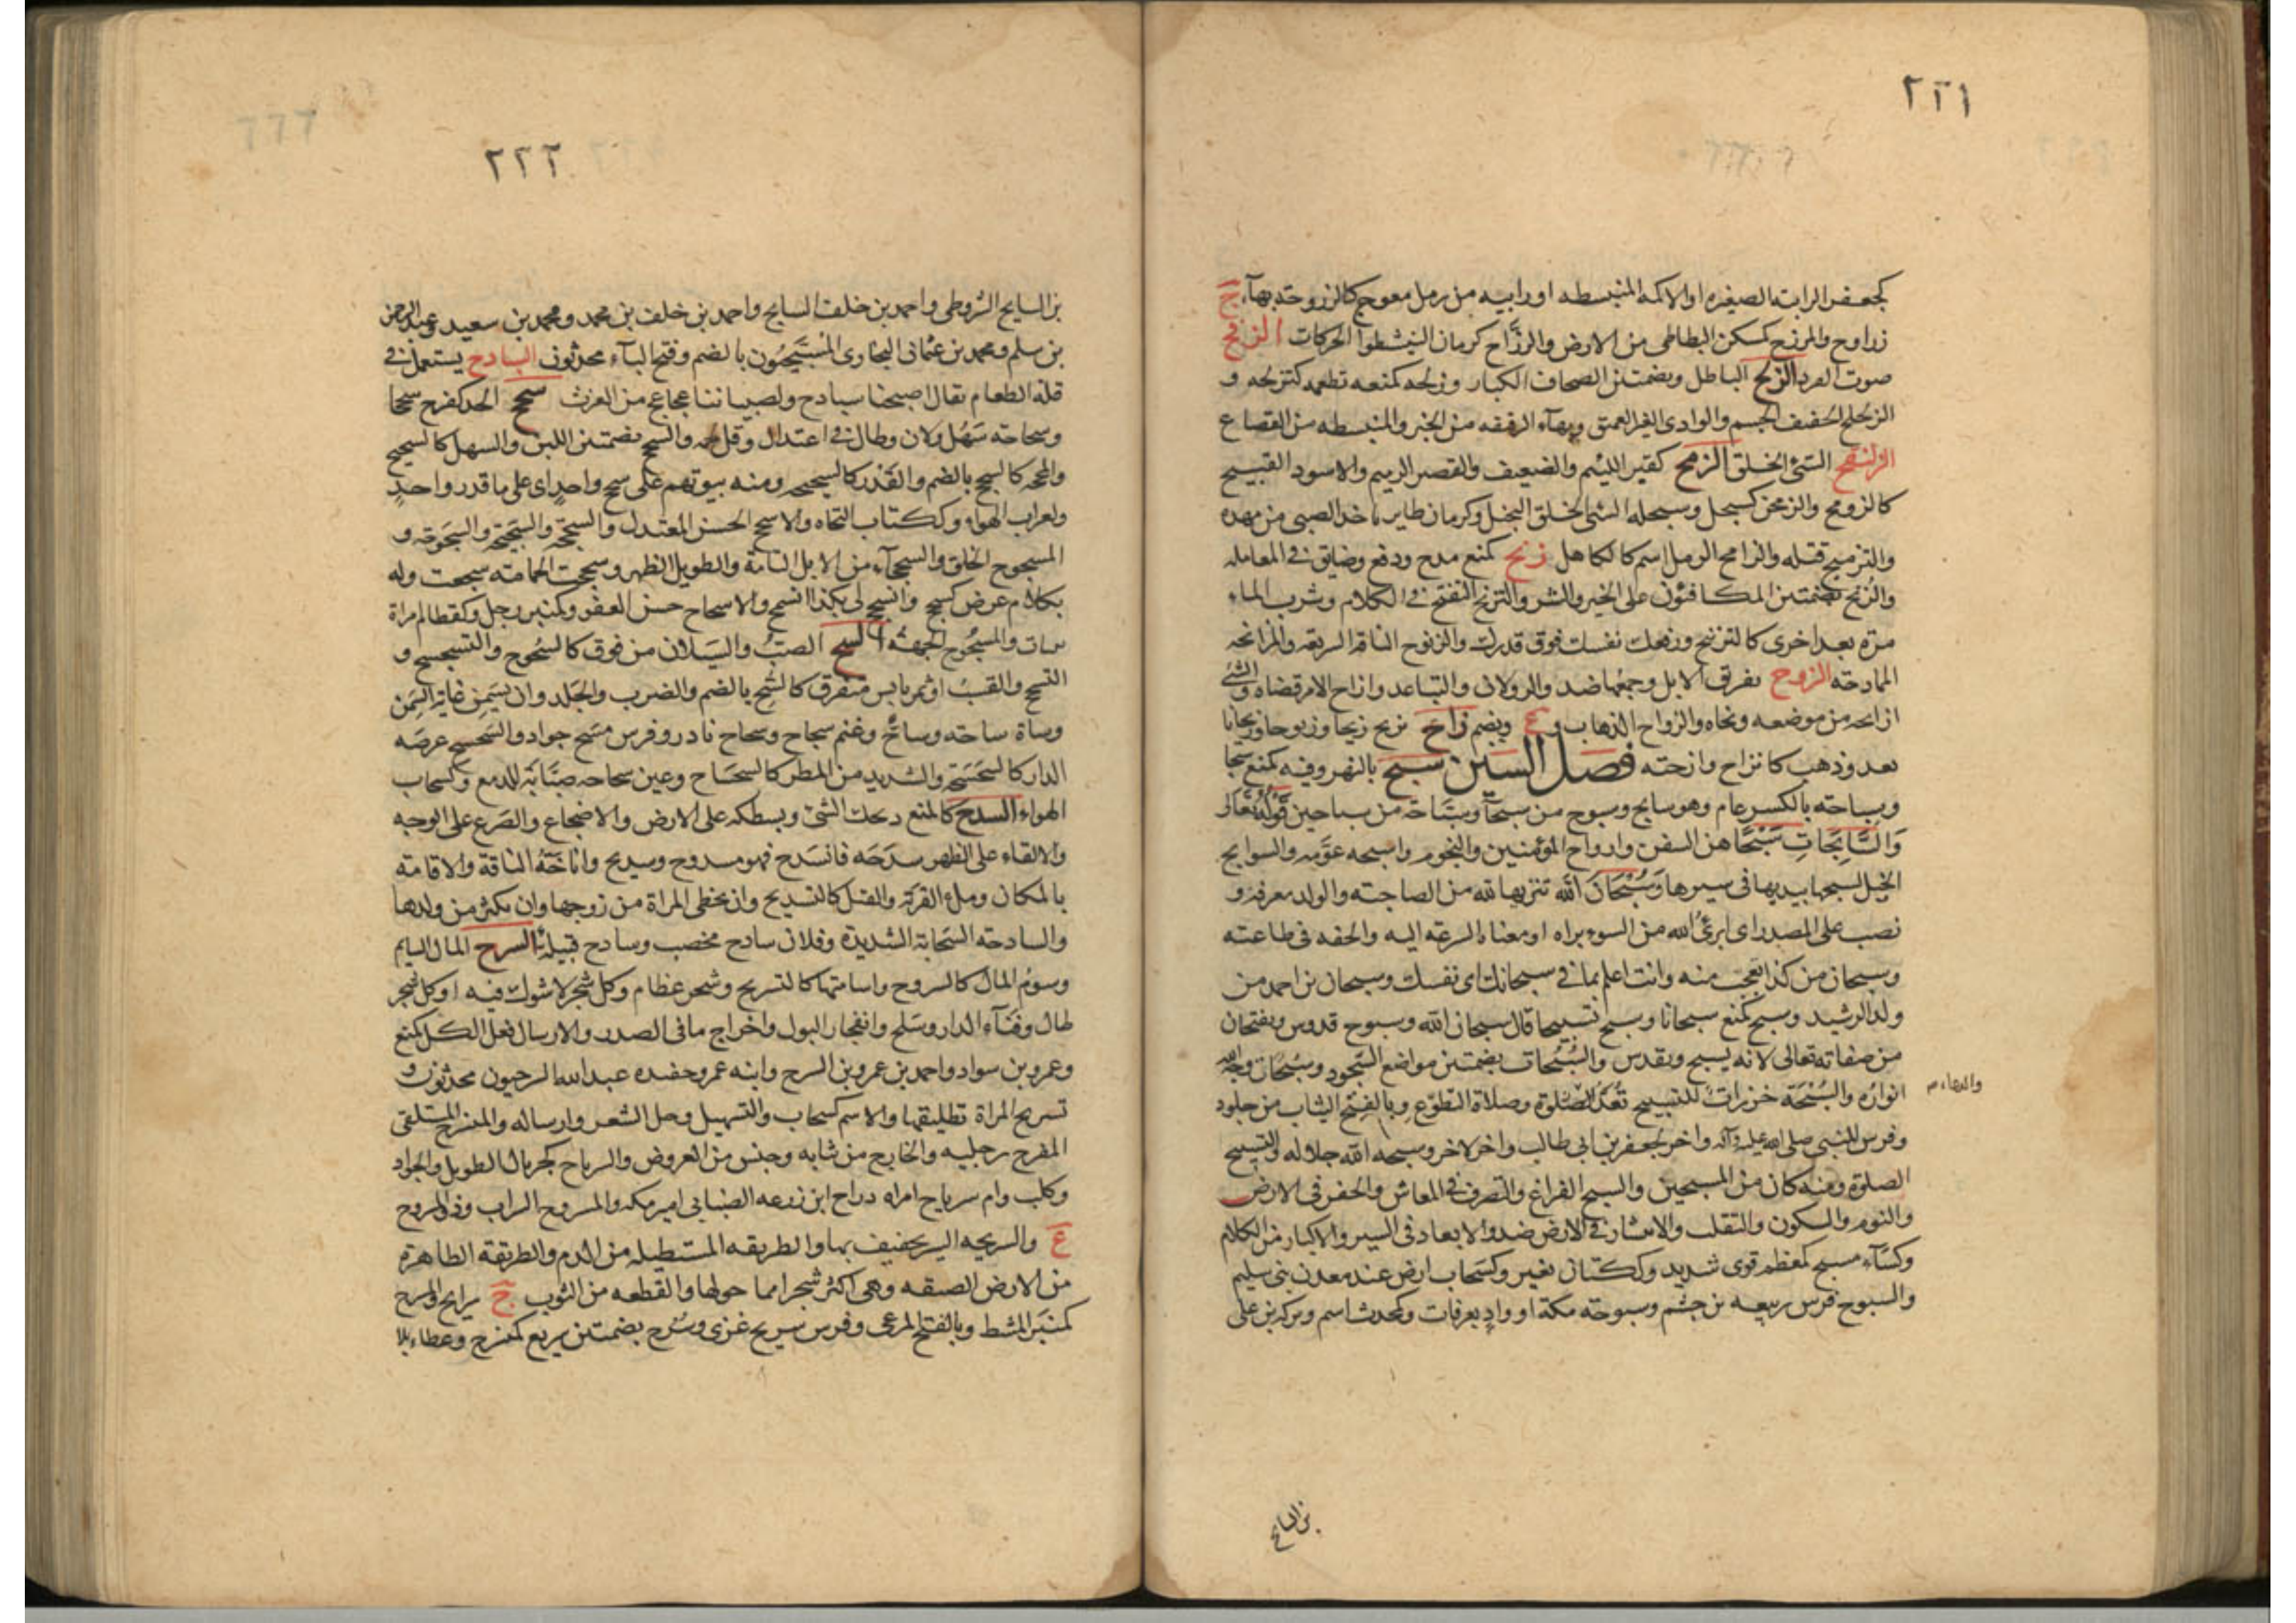 ٢٢١
كجعفر الرابية الصغيره او الاكمه المنبسطه او رابيه من رمل معوج كالزروحة بهآء ج
زراوح والمزرح كمسكن البطاطى من الارض والزرّاح كرمان النشيطوا الحركات الزقح
صوت القرد الزلح الباطل وبضمتين الصحاف الكبار وزلحه كمنعه تطعمه كتزلحه و
الزلحلح الخفيف الجسم والوادى الغير العميق وبهآء الرققه من الخبز والمنبسطه من القصاع
الزلنقح السّئ الخلق الزمح كقبر اللئيم والضعيف والقصير الدميم والاسود القبيح
كالزومح والزمحن كسبحل وسبحله السّئ الخلق البخيل وكرمان طاير ياخذ الصبى من مهده
والتزميح قتله والزامح الدمل اسم كالكاهل زنح كمنع مدح ودفع وضايق فى المعامله
والزنح بضمتين المكافئون على الخير والشر والتزنح التفتح فى الكلام وشرب الماء
مرة بعد اخرى كالتزنيح ورفعك نفسك فوق قدرك والزنوح الناقة السريعه والمزانحه
الممادحه الزوح تفريق الابل وجمعها ضد والزولان والتباعد وازاح الامر قضاه والشئ
ازاحه من موضعه ونحاه والزواح الذهاب و ع وبضم زاح يزيح زيحا وزيوحا وزيحانا
بعد وذهب كانزاح وازحته فصل السين سبح بالنهر وفيه كمنع سبحا
وسباحته بالكسر عام وهو سابح وسبوح من سبحآ وسبّاحة من سباحين قوله تعالى
وَالسَّابِحَاتِ سَبْحًا هن السفن وارواح المؤمنين والنجوم واسبحه عوّمه والسوابح
الخيل لسبحها بيديها فى سيرها وَسُبْحَانَ الله تنزيها لله من الصاحبة والولد معرفة و
نصب على المصدر اى ابرئ الله من السوء براة او معناه السرعة اليه والخفه فى طاعته
وسبحان من كذا تعجب منه وانت اعلم بما فى سبحانك اى نفسك وسبحان بن احمد من
ولد الرشيد وسبح كمنع سبحانا وسبح تسبيحا قال سبحان الله وسبوح قدوس ويفتحان
من صفاته تعالى لانه يسبح ويقدس والسُبُحات بضمتين مواضع السّجود وسُبُحَات وجه الله
انواره والسُبْحَة خرزات للتسبيح تُعَدّ والصّلوة وصلاة التطوّع وبالفتح الثياب من جلود
والدعاء م
وفرس للنبى صلى الله عليه وآله واخر لجعفر بن ابى طالب واخر لاخر وسبحه الله جلاله والتسبيح
الصلوة ومنه كان من المسبحين والسبح الفراغ والتصرف فى المعاش والحفر فى الارض
والنوم والسكون والتقلب والانتشار فى الارض ضد والابعاد فى السير والاكثار من الكلام
وكسآء مسبح كمعظم قوى شديد وككتان بعير وكسحاب ارض عند معدن بنى سليم
والسبوح فرس ربيعه بن جشم وسبوحته مكة او واد بعرفات وكمحدث اسم وبركه بن على
بن السايح
٢٢٢
بن السايح الشروطى واحمد بن خلف السابح واحمد بن خلف بن محمد ومحمد بن سعيد وعبد الرحمن
بن سلم ومحمد بن عثمان البخارى السُّبَحيّون بالضم وفتح البآء محدثون السادح يستعمل فى
قلة الطعام يقال اصبحنا سبادح ولصبياننا عجاعج من الغرث سجح الخد كفرح سجحا
وسجاحته سَهُل ولان وطال فى اعتدال وقل لحمه والسجح بضمتين اللين والسهل كالسجيح
والمحجه كالسجح بالضم والقَدْر كالسجيحه ومنه بيوتهم على سجح واحد اى على ما قدر واحد
ولغراب الهواء وككتاب التجاه والاسجح الحسن المعتدل والسجحة والسجيحة والسجوحة و
المسجوح الخلق والسجحآء من الابل التامة والطويل الظهر وسجحت الحمامة سجعت وله
بكلام عرض كسجح وانسجح لى بكذا انسمح والاسجاح حسن العفو وكمنبر رجل وكقطام امراة
تنبات والمسجوح الجهة السح الصبّ والسيَلان من فوق كالسُحوح والتسحسح و
التسحّ والقسبُ او تمر يابس متفرق كالسُّح بالضم والضرب والجلد وان يسمن غاية السِمَن
وشاة ساحته وساحّ وغنم سحاح وسحاح نادر وفرس مسح جواد والسحسح عرصَه
الدار كالسحسَحة والشديد من المطر كالسحساح وعين سحاحه صبّابة للدمع وكسحاب
الهواء السدح كالمنع ذبحك الشئ وبسطكه على الارض والاضجاع والصَرع على الوجه
والالقاء على الظهر سدَحَه فانسَدح فهو مسدوح وسديح واناخَةُ الناقة والاقامة
بالمكان وملء القربة والقتل كالتسديح وان تحظى المراة من زوجها وان تكثر من ولدها
والسادحته السّحابة الشديدة وفلان سادح مخصب وسادح قبيلة السرح المال السايم
وسومُ المال كالسروح واسامتها كالتسريح وشجر عظام وكل شجر لا شوك فيه او كل شجر
طال وفنآء الدار وسَلح وانفجار البول واخراج ما فى الصدر والارسال فعل الكل كمنع
وعمرو بن سواد واحمد بن عمرو بن السرح وابنه عمر وحفيده عبدالله السرحيون محدثون و
تسريح المراة تطليقها والاسم كسحاب والتسهيل وحل الشعر وارساله والمنسرح المستلقى
المفرج رجليه والخارج من ثيابه وجنس من العروض والسرياح كجريال الطويل والجواد
وكلب وام سرياح امراه دراج ابن زرعه الضبابى امير مكه والمسروح الشراب وذو المسروح
ع والسريحه السير يخصف بها والطريقه المستطيله من الدم والطريقة الظاهرة
من الارض الضيقه وهى اكثر شجرا مما حولها والقطعه من الثوب ج سرايح والمسرح
كمنبَر المشط وبالفتح المرعى وفرس سريح عُرى وسُرح بضمتين سريع كمنسرح وعطاء بلا